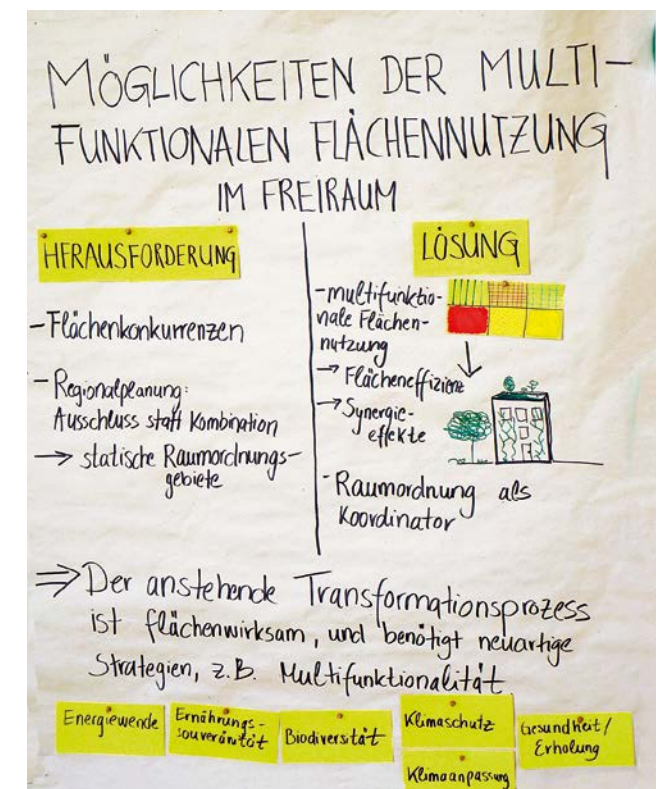 MÖGLICHKEITEN DER MULTI-
FUNKTIONALEN FLÄCHENNUTZUNG
IM FREIRAUM
HERAUSFORDERUNG
- Flächenkonkurrenzen
- Regionalplanung:
Ausschluss statt Kombination
→ statische Raumordnungs-
gebiete
LÖSUNG
- multifunktio-
nale Flächen-
nutzung
→ Flächeneffizienz
→ Synergie-
effekte
- Raumordnung als
Koordinator
⇒ Der anstehende Transformationsprozess
ist flächenwirksam, und benötigt neuartige
Strategien, z.B. Multifunktionalität
Energiewende
Ernährungs-
souveränität
Biodiversität
Klimaschutz
Klimaanpassung
Gesundheit/
Erholung